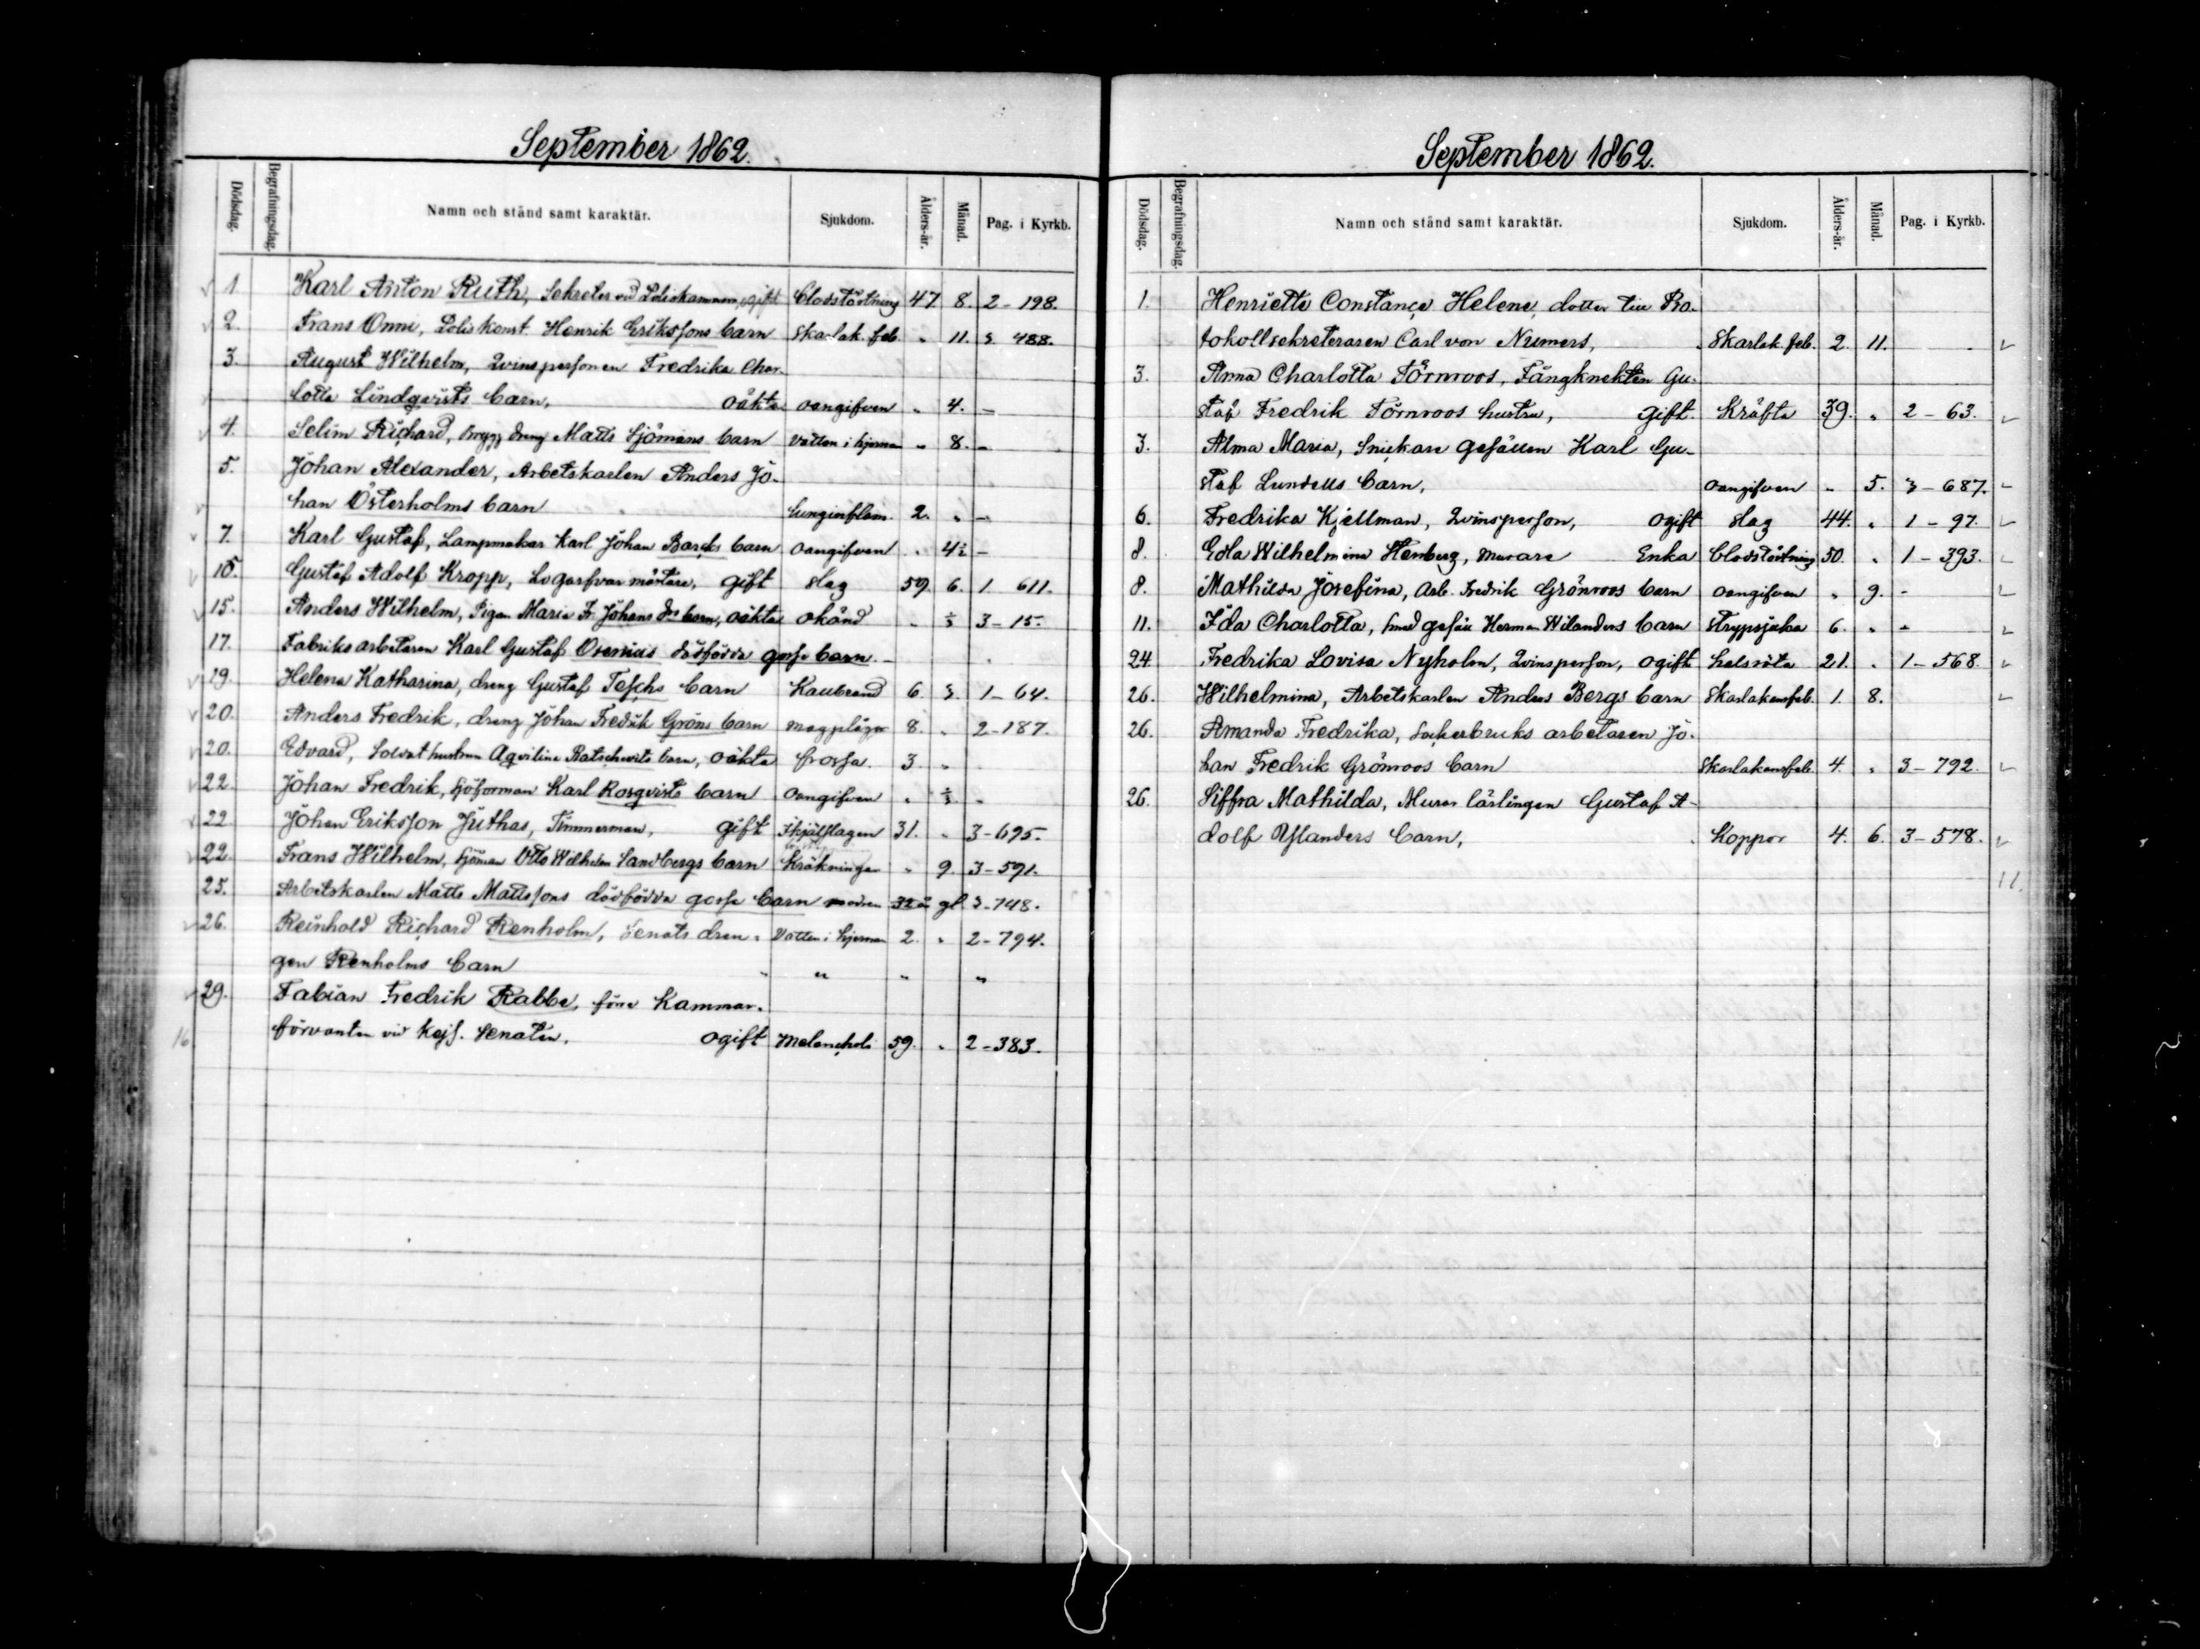 September 1862.
Dödsdag. Begrafningsdag. Namn och stånd samt karaktär. Sjukdom. Ålders-år. Månad. Pag. i Kyrkb.
1. Karl Anton Ruth, Sekreter vid Poliskammaren, ogift Blodstörtning 47. 8. 2-198.
2. Frans Onni, Polis konst. Henrik Erikssons barn Skarlak. feb. " 11. 3. 488.
3. August Wilhelm, Qvinspersonen Fredrika Char-
lotta Lindqvists barn, oäkta oangifven " 4. -
4. Selim Richard, brygg dreng Matts Sjömans barn vatten i hjernan " 8. -
5. Johan Alexander, Arbetskarlen Anders Jo-
han Österholms barn lunginflam. 2. " -
7. Karl Gustaf, Lampmakar Karl Johan Barcks barn oangifven " 4½ -
10. Gustaf Adolf Kropp, Logarfvar mästare, gift slag 59. 6. 1 611.
15. Anders Wilhelm, Pigan Maria Fr. Johans drs barn, oäkta okänd " 3-15.
17. Fabriks arbetaren Karl Gustaf Orenius dödfödda gosse barn. -
19. Helena Katharina, dreng Gustaf Teschs barn Kallbrand 6. 3. 1-64.
20. Anders Fredrik, dreng Johan Fredrik Gröns barn magplåga 8. " 2-187.
20. Edvard, Soldat hustrun Aqvilina Ratschwits barn, oäkta frossa. 3. "
22. Johan Fredrik, Karl Rosqvists barn oangifven " -
22. Johan Eriksson Juthas, Timmerman, gift Ihjälslagen 31. " 3-695.
22. Frans Wilhelm, Sjöman Otto Wilhelm Sandbergs barn Kräkningar " 9. 3-591.
25. Arbetskarlen Matts Mattssons dödfödda gosse barn modren 32 å gl. 3-748.
26. Reinhold Richard Renholm, Senats dren- Vatten i hjernan 2. " 2-794.
gen Renholms barn " " " "
29. Fabian Fredrik Rabbe, förre Kammar-
16 förvanten vid Kejs. Senaten. ogift Melancholi 59. " 2-383.
September 1862.
Dödsdag. Begrafningsdag. Namn och stånd samt karaktär. Sjukdom. Ålders-år. Månad. Pag. i Kyrkb.
1. Henriette Constance Helene, dotter till Pro-
tokollsekreteraren Carl von Numers, Skarlak. feb. 2. 11.
3. Anna Charlotta Törnroos, Fångknekten Gu-
staf Fredrik Törnroos hustru, gift. Kräfta 39. " 2-63.
3. Alma Maria, Snickare gesällen Karl Gu-
staf Lundells barn, oangifven " 5. 3-687.
6. Fredrika Kjellman, Qvinsperson, ogift slag 44. " 1-97.
8. Eola Wilhelmina Stenberg, murare Enka Blodstörtning 50. " 1-393.
8. Mathilda Josefina, Arb. Fredrik Grönroos barn oangifven " 9. -
11. Ida Charlotta, smed gesäll Herman Wilanders barn Strypsjuka 6. " -
24. Fredrika Lovisa Nyholm, Qvinsperson, ogift halsröta 21. " 1-568.
26. Wilhelmina, Arbetskarlen Anders Bergs barn Skarlakansfeb. 1. 8.
26. Amanda Fredrika, Sockerbruks arbetaren Jo-
han Fredrik Grönroos barn Skarlakansfeb. 4. " 3-792.
26. Siffra Mathilda, Murar lärlingen Gustaf A-
dolf Ylanders barn, Koppor 4. 6. 3-578.
11.